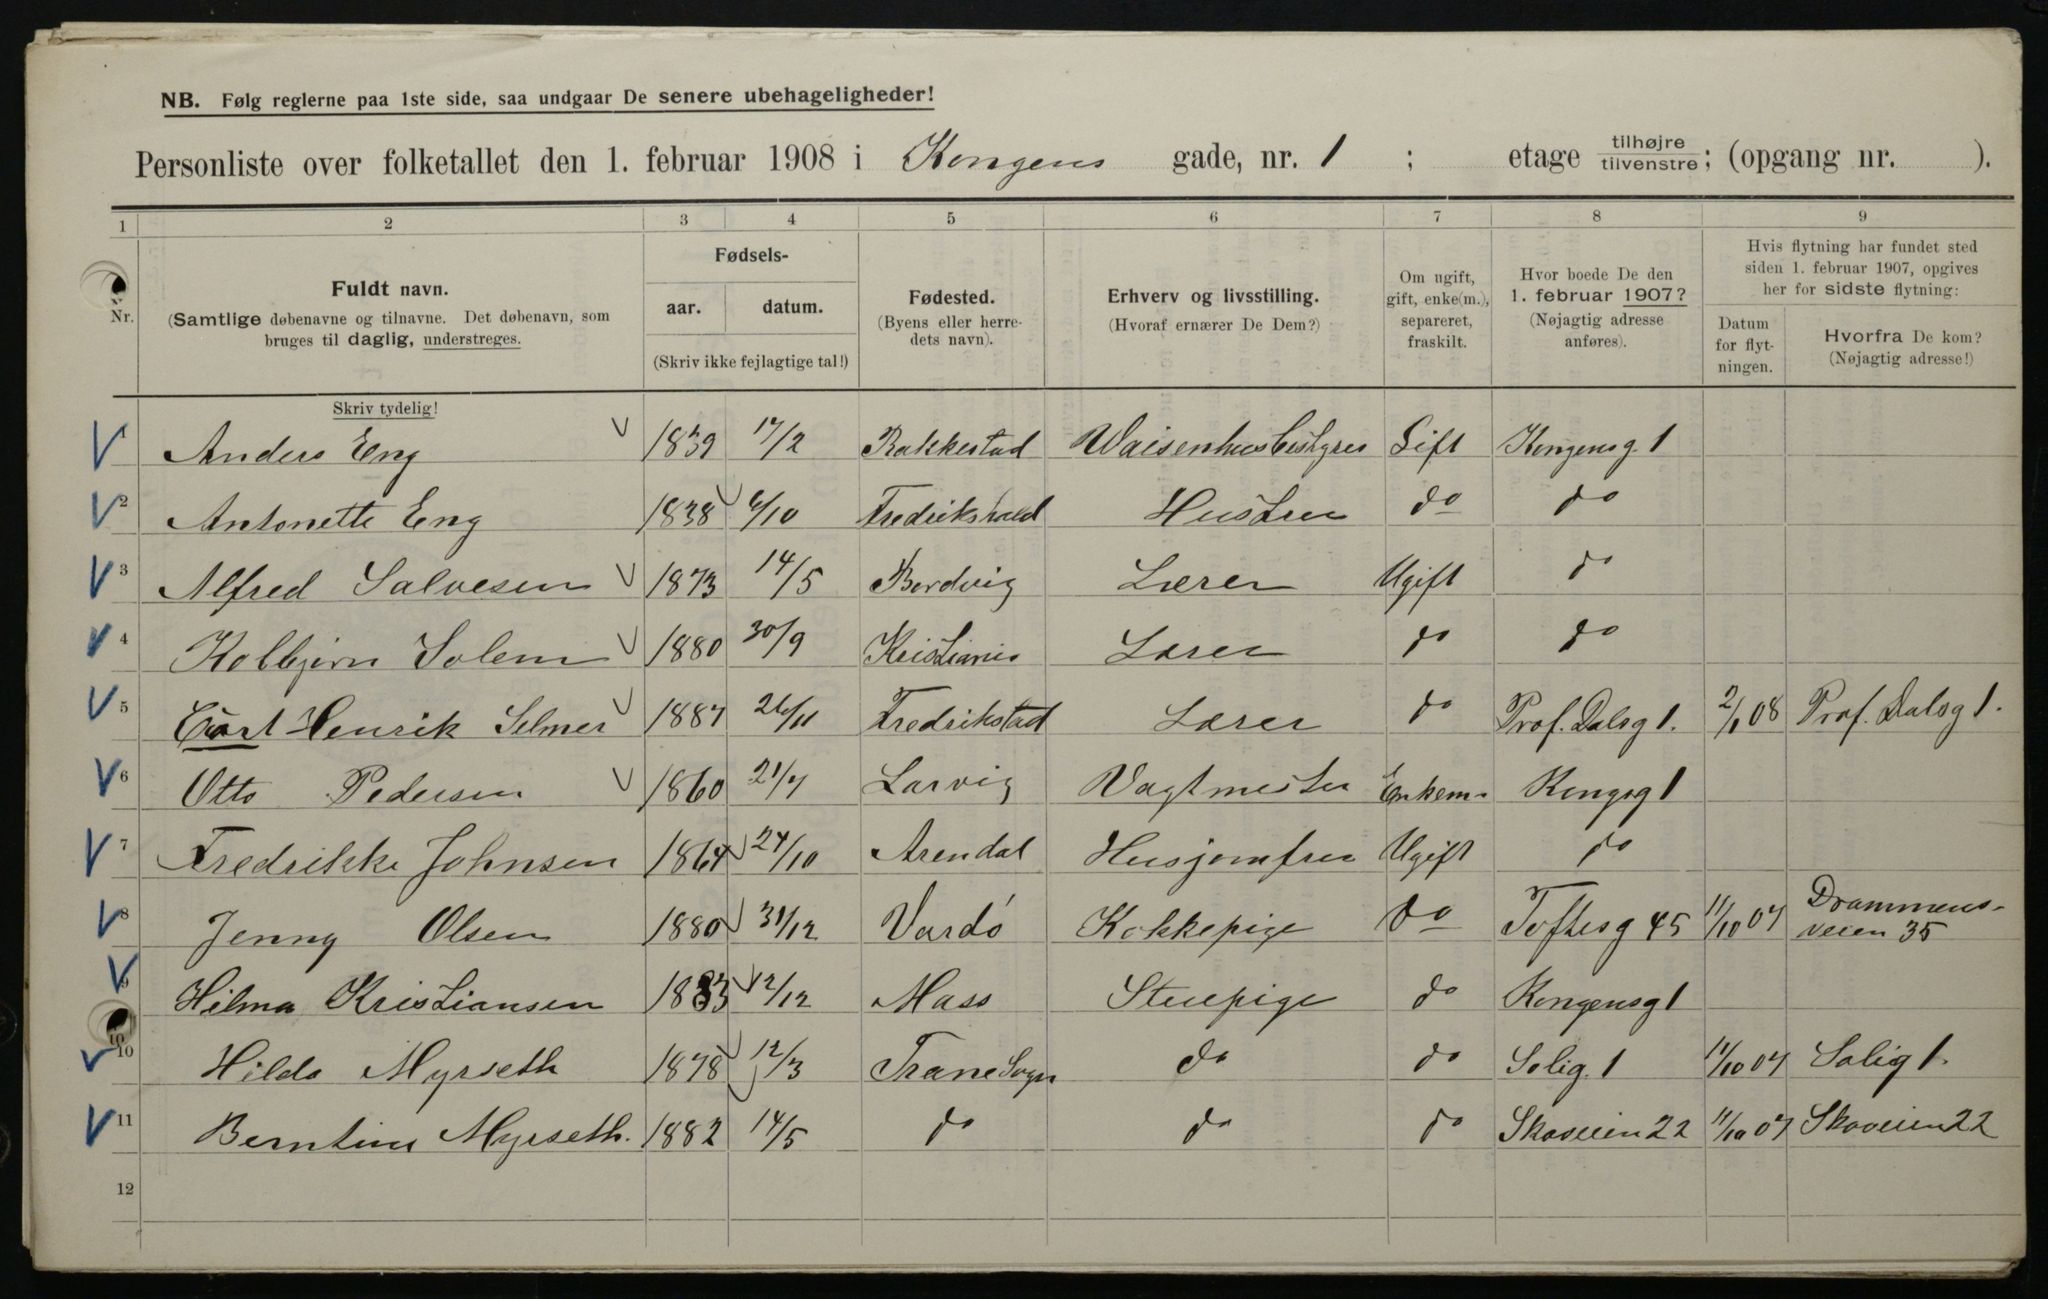 NB. Følg reglerne paa 1ste side, saa undgaar De senere ubehageligheder!
Personliste over folketallet den 1. februar 1908 i Kongens gade, nr. 1 ; etage tilhøjre tilvenstre; (opgang nr. ).
1 2 3 4 5 6 7 8 9
Nr.
Fuldt navn.
(Samtlige døbenavne og tilnavne. Det døbenavn, som
bruges til daglig, understreges.
Fødsels-
aar. datum.
(Skriv ikke fejlagtige tal!)
Fødested.
(Byens eller herre-
dets navn).
Erhverv og livsstilling.
(Hvoraf ernærer De Dem?)
Om ugift,
gift, enke(m.),
separeret,
fraskilt.
Hvor boede De den
1. februar 1907?
(Nøjagtig adresse
anføres).
Hvis flytning har fundet sted
siden 1. februar 1907, opgives
her for sidste flytning:
Datum
for flyt-
ningen.
Hvorfra De kom?
(Nøjagtig adresse!)
Skriv tydelig!
1 Anders Eng 1839 17/2 Rakkestad Waisenhusbestyrer Gift Kongensg. 1
2 Antonette Eng 1838 6/10 Fredrikshald Hustru do do
3 Alfred Salvesen 1873 14/5 Bordvig Lærer Ugift do
4 Kolbjørn Solem 1880 30/9 Kristiania Lærer do do
5 Henrik Selmer 1887 26/11 Fredrikstad Lærer do Prof. Dalsg 1. 2/1 08 Prof. Dalsg 1.
6 Otto Pedersen 1860 21/7 Larvig Vagtmester Enkem. Kongsg 1
7 Fredrikke Johnsen 1864 24/10 Arendal Husjomfru Ugift do
8 Jenny Olsen 1880 31/12 Vardø Kokkepige do Toftesg 45 11/10 07 Drammens-
veien 35
9 Hilma Kristiansen 1883 12/12 Moss Stuepige do Kongensg 1
10 Hilda Myrseth 1878 12/3 Trane Sogn do do Solig. 1 11/10 07 Solig 1.
11 Berntine Myrseth. 1882 14/5 do do do Skoveien 22 11/10 07 Skoveien 22
12